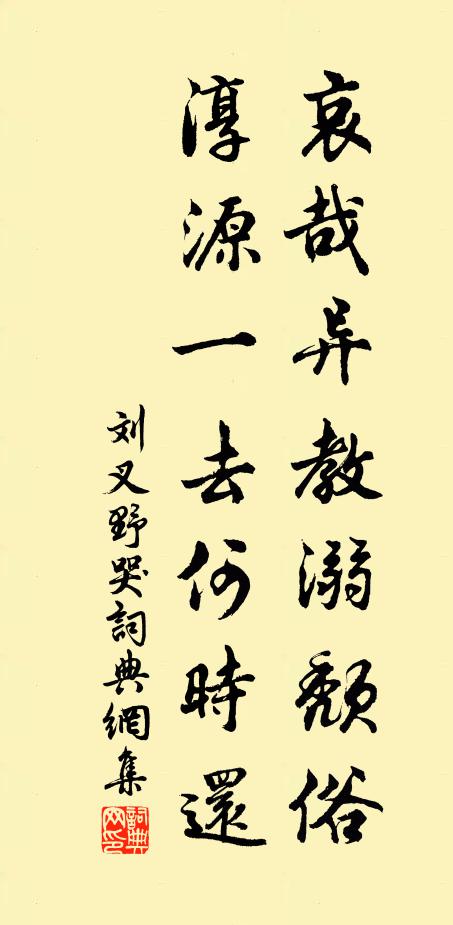 哀哉异教溺颓俗
淳源一去何時還
刘叉野哭詞典網集
詞典网印